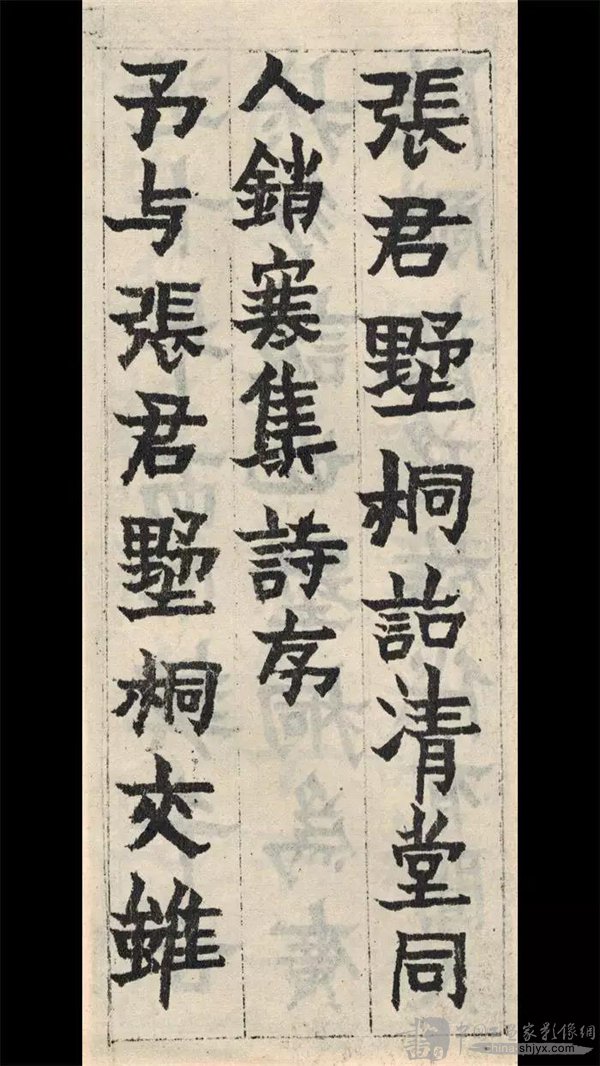 張君墅桐詒清堂同
人銷寒集詩序
予与張君墅桐交雖
家影像網
china-shjyx.com